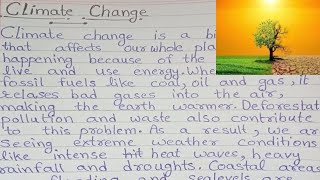 Climate Change
Climate change is a bi
that affects our whole pla
happening because of the
live and use energy. Whe
fossil fuels like coal, oil and gas, it
relases bad gases into the air,
making the earth warmer. Deforestat
pollution and waste also contribute
to this problem. As a result, we ar
seeing extreme weather conditions
like intense heat waves, heavy
rainfall and droughts. Coastal areas
flooding and sealevels are